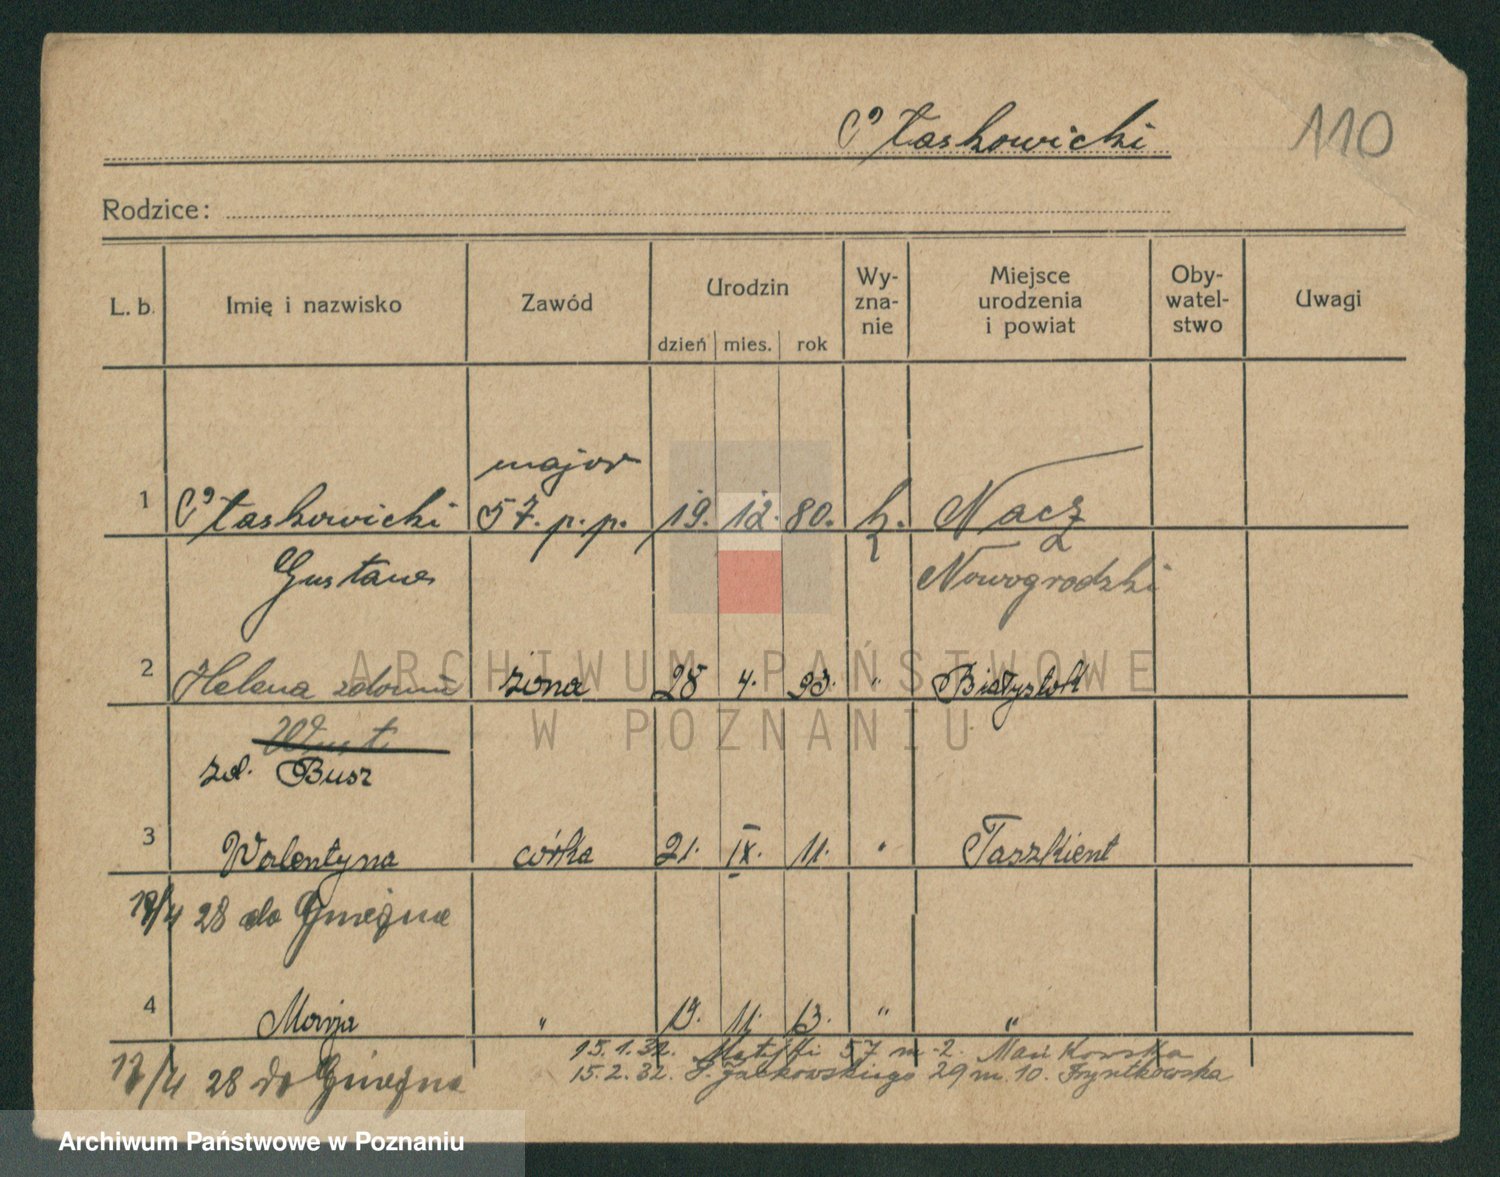 Ptaskowicki
110
Rodzice:
L. b. Imię i nazwisko Zawód Urodzin dzień mies. rok Wy-zna-nie Miejsce urodzenia i powiat Oby-watel-stwo Uwagi
major
1 Ptaskowicki 57. p. p. 19. 12. 80. k. Nacz
Gustaw Nowogrodzki
2 Helena z domu żona 28 4. 93. " Białystok
zd. Busz
3 Walentyna córka 21. IX. 11. " Taszkient
17/4 28 do Gniezna
4 Marja " 19. 11. 13. " "
15.1.32. 57 m. 2.
17/4 28 do Gniezna 15.2.32. 29 m. 10.
ARCHIWUM PAŃSTWOWE
W POZNANIU
Archiwum Państwowe w Poznaniu